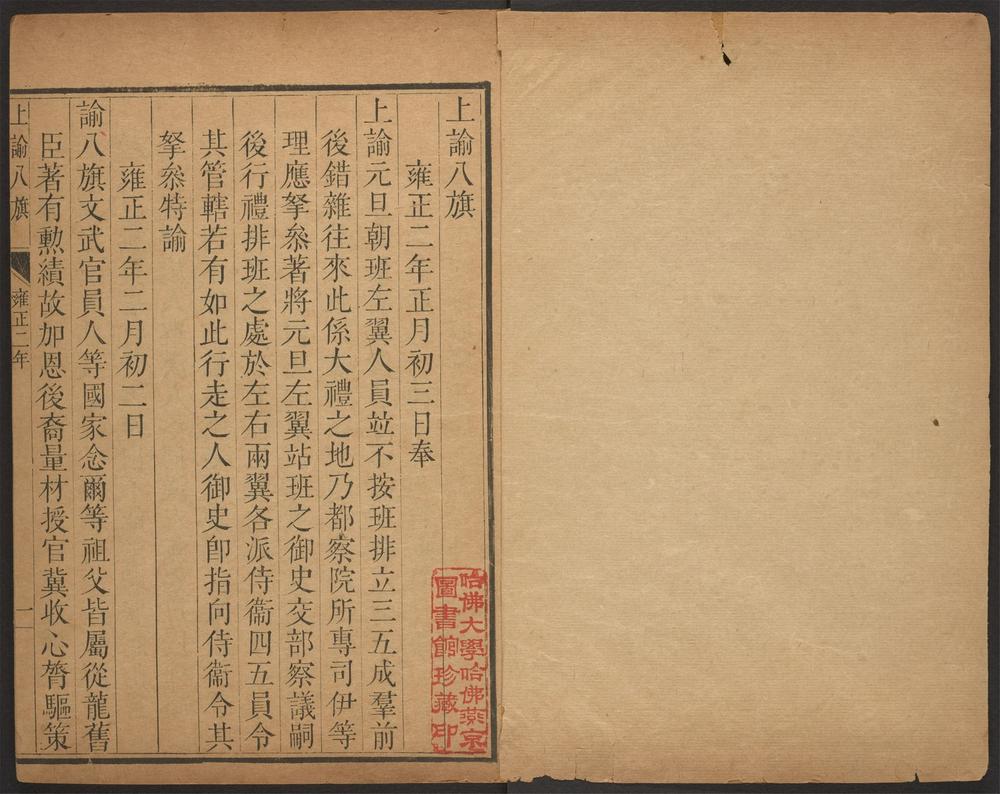 上諭八旗
雍正二年正月初三日奉
上諭元旦朝班左翼人員竝不按班排立三五成羣前
後錯雜往來此係大禮之地乃都察院所專司伊等
理應拏叅著將元旦左翼站班之御史交部察議嗣
後行禮排班之處於左右兩翼各派侍衞四五員令
其管轄若有如此行走之人御史卽指向侍衞令其
拏叅特諭
雍正二年二月初二日
諭八旗文武官員人等國家念爾等祖父皆屬從龍舊
臣著有勲績故加恩後裔量材授官冀收心膂驅策
上諭八旗 雍正二年 一
哈佛大學哈佛燕京
圖書館珍藏印